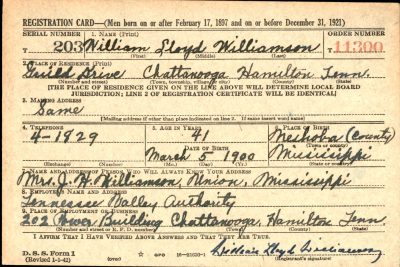 REGISTRATION CARD—(Men born on or after February 17, 1897 and on or before December 31, 1921)
SERIAL NUMBER 1. NAME (Print) ORDER NUMBER
T 203 William Lloyd Williamson T 11300
(First) (Middle) (Last)
2. PLACE OF RESIDENCE (Print)
Drive Chattanooga Hamilton Tenn.
(Number and street) (Town, township, village, or city) (County) (State)
[THE PLACE OF RESIDENCE GIVEN ON THE LINE ABOVE WILL DETERMINE LOCAL BOARD
JURISDICTION; LINE 2 OF REGISTRATION CERTIFICATE WILL BE IDENTICAL]
3. MAILING ADDRESS
Same
[Mailing address if other than place indicated on line 2. If same insert word same]
4. TELEPHONE 5. AGE IN YEARS 6. PLACE OF BIRTH
4-1829 41 Neshoba (County)
DATE OF BIRTH (Town or county)
March 5 1900 Mississippi
(Exchange) (Number) (Mo.) (Day) (Yr.) (State or country)
7. NAME AND ADDRESS OF PERSON WHO WILL ALWAYS KNOW YOUR ADDRESS
Mrs. J. H. Williamson, Union, Mississippi
8. EMPLOYER'S NAME AND ADDRESS
Tennessee Valley Authority
9. PLACE OF EMPLOYMENT OR BUSINESS
202 Power Building Chattanooga, Hamilton Tenn
(Number and street or R. F. D. number) (Town) (County) (State)
I AFFIRM THAT I HAVE VERIFIED ABOVE ANSWERS AND THAT THEY ARE TRUE.
D. S. S. Form 1
(Revised 1-5-42) (over) William Lloyd Williamson